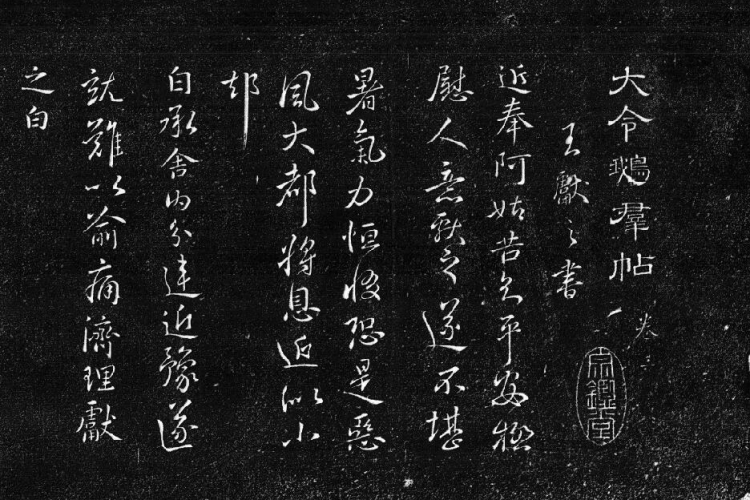 大令鵝羣帖
卷三
王獻之書
近奉阿姑告久平安極
慰人意獻之遂不堪
暑氣力恒惙恐是惡
風大都將息近似小
却
自承舍內分違近豫遂
就難以喻痛濟理獻
之白